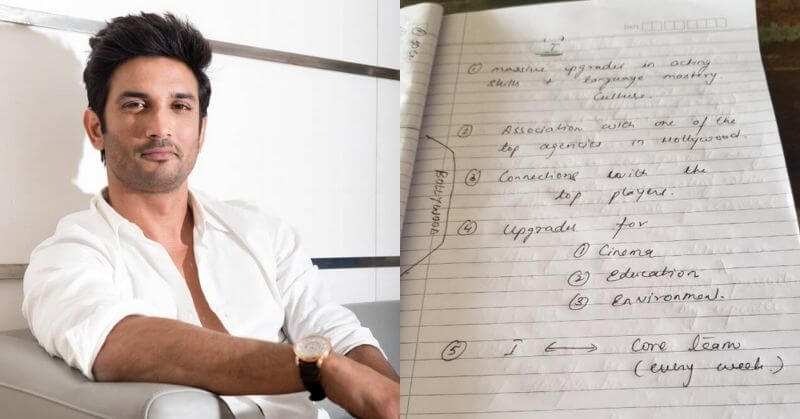 I
① Massive upgrades in acting
skills + language mastery
Culture.
② Association with one of the
top agencies in Hollywood.
③ Connections with the
top players.
④ Upgrades for
① Cinema
② Education
③ Environment.
⑤ I ⟷ Core team
(every week.)
BOLLYWOOD